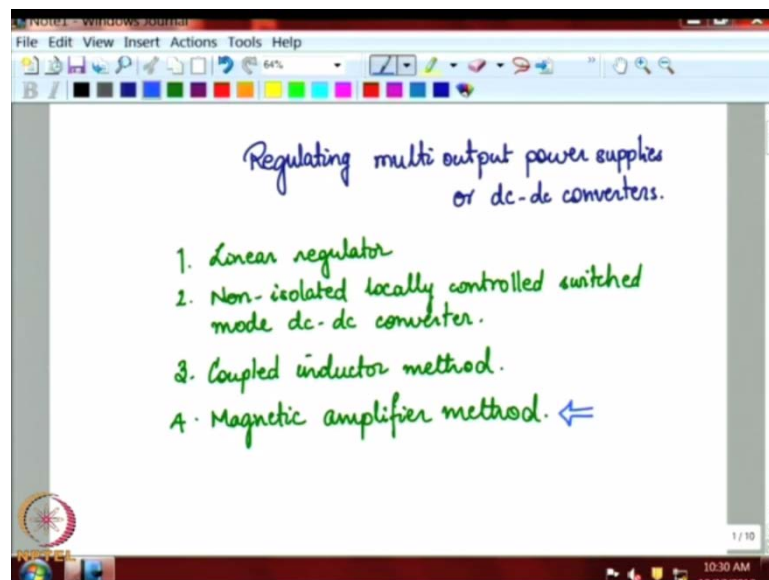 Note1 - Windows Journal
File Edit View Insert Actions Tools Help
64%
B I
Regulating multi output power supplies
or dc-dc converters.
1. Linear regulator
2. Non-isolated locally controlled switched
mode dc-dc converter.
3. Coupled inductor method.
4. Magnetic amplifier method. ⇐
1 / 10
NPTEL
10:30 AM